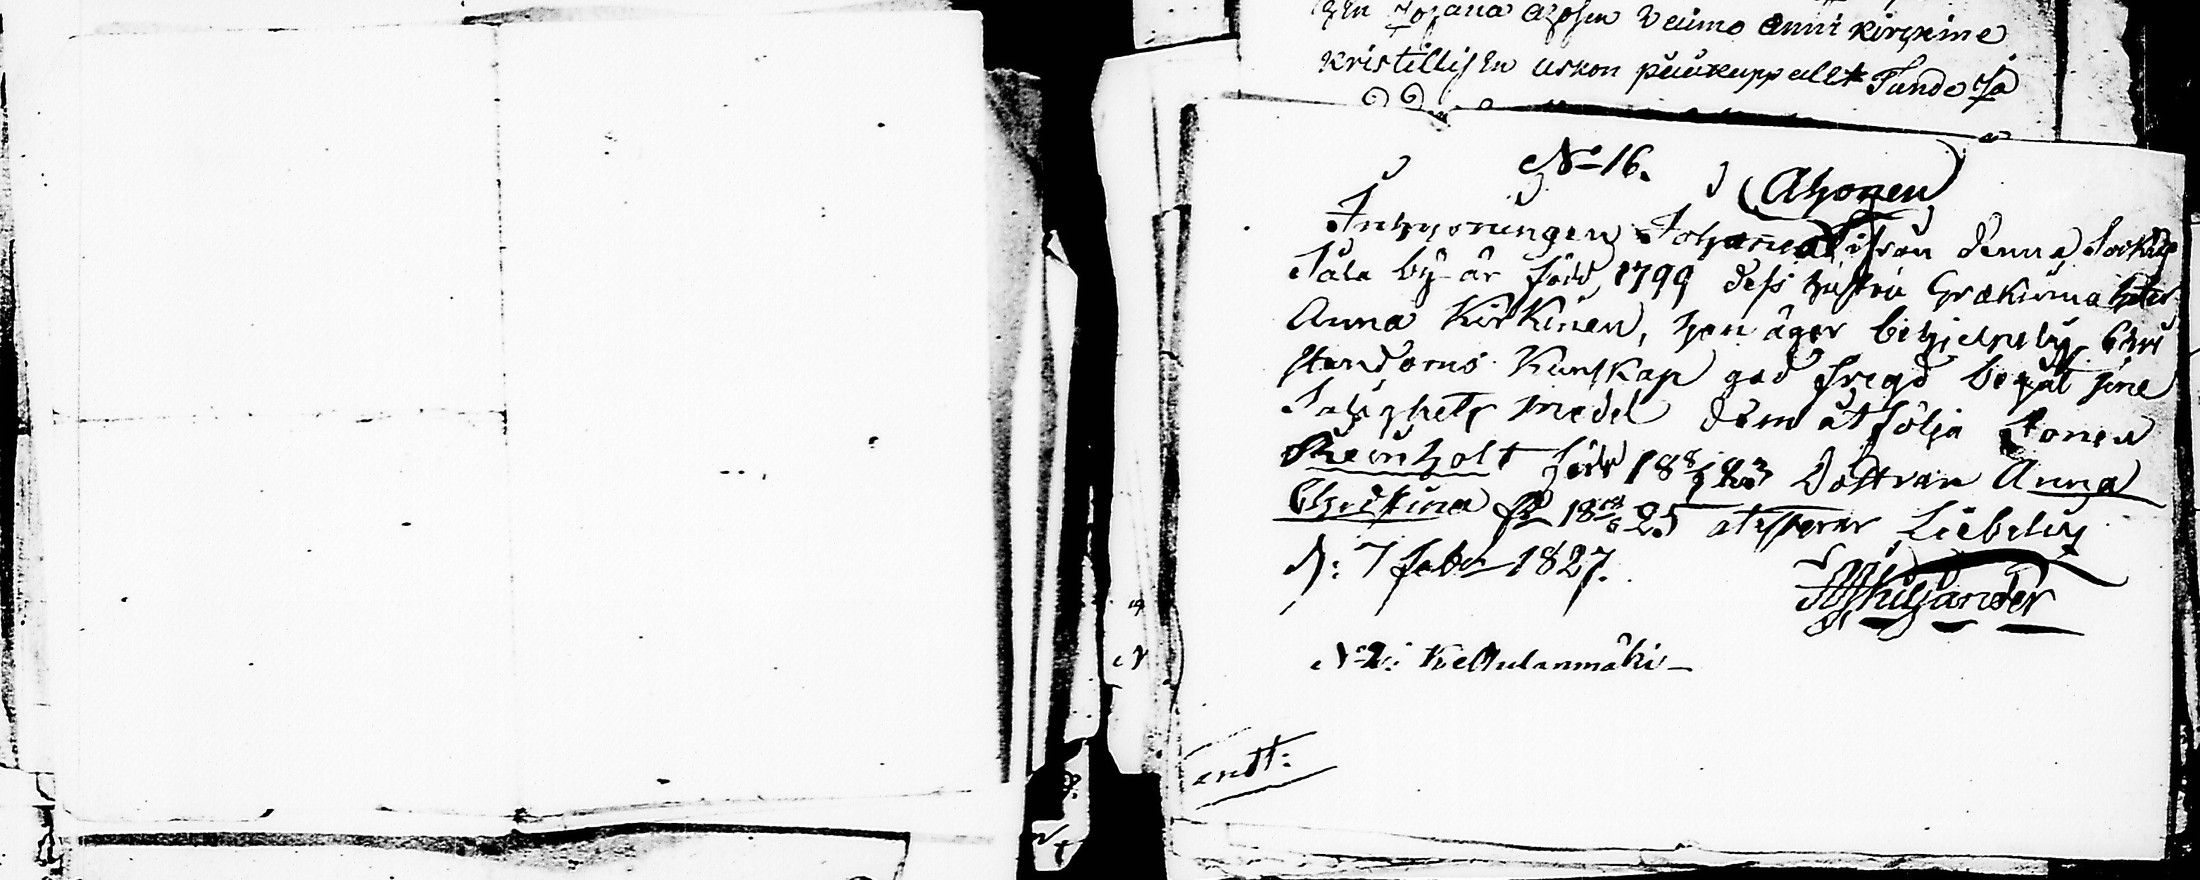 Johana Ahosen Vaimo Anni Kirkine
Kristillisen uskon pääkappallet Tunde ja
No 16.
(Ahonen)
Inhysningen Johannes ifrån denna Sockn
Sala by är född 1799 dess hustru Grekinna heter
Anna Kirkinen, han äger behjelpelig Chri
stendoms Kunskap god fregd begåt sine
Salighets medel dem åtfölja Sonen
Reinholt född 18 8/1 23 Dottren Anna
Christina fd 18 25 attesterar Liebelitz
d: 7 Febr 1827.
No 2: Kettulanmäki